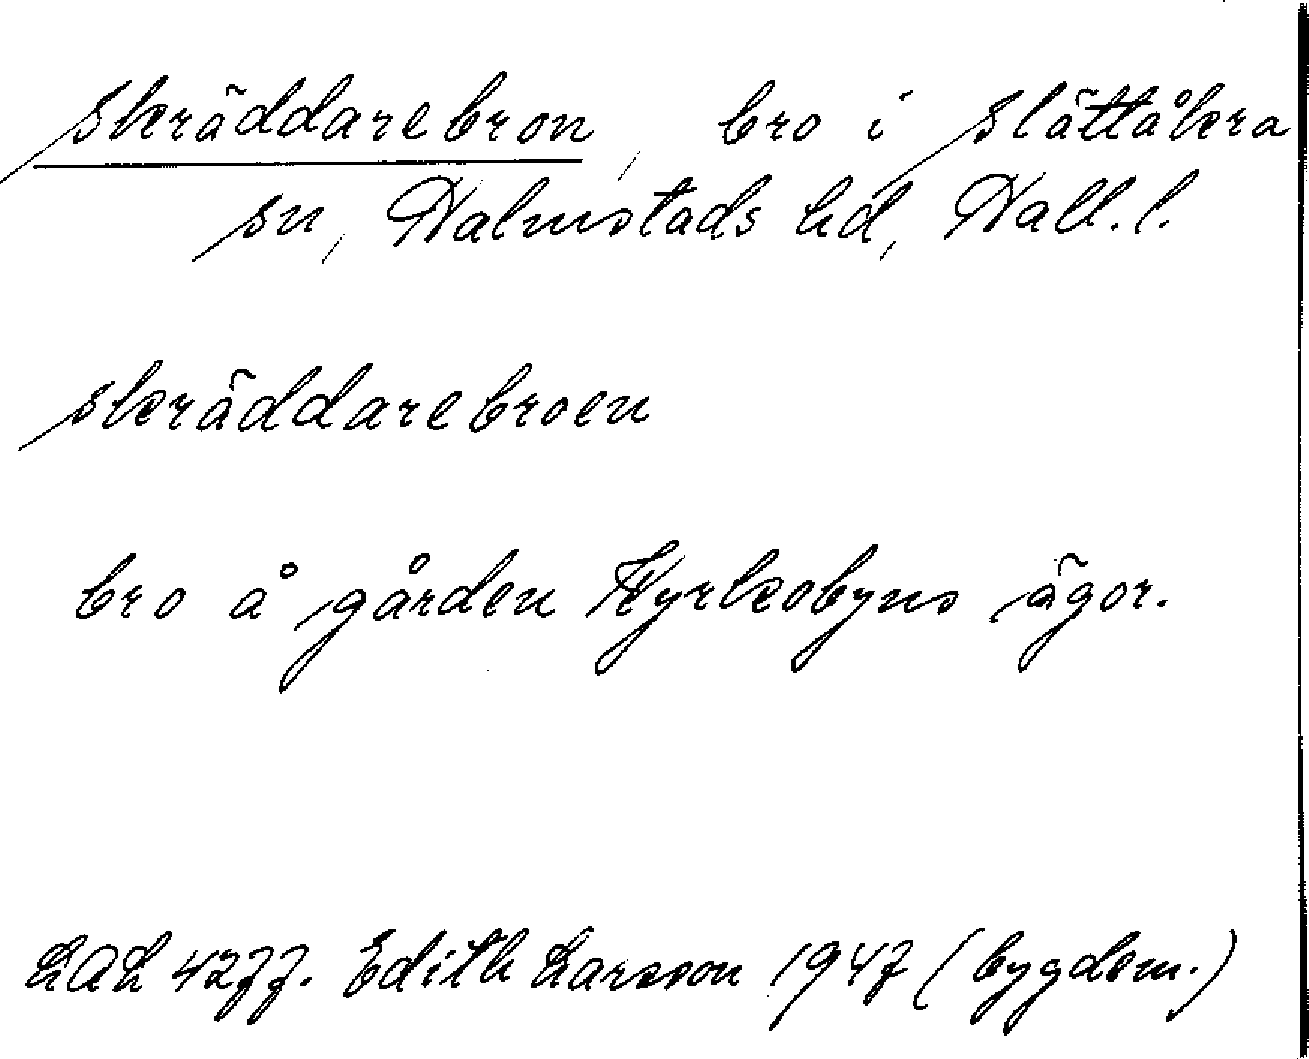 Skräddarebron, bro i Slättåkra
sn, Halmstads hd, Hall. l.
skräddarebroen
bro å gården Kyrkobyns ägor.
LAL 4277. Edith Larsson 1947 (bygdem.)